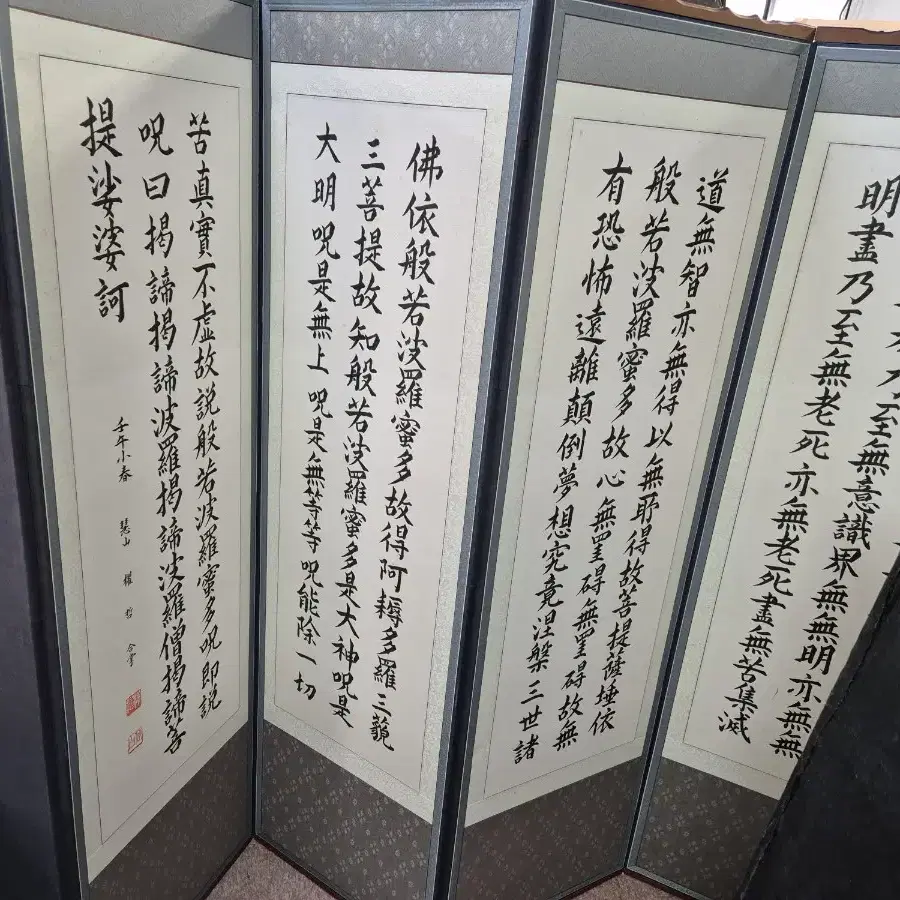 乃至無意識界無無明亦無無
明盡乃至無老死亦無老死盡無苦集滅
道無智亦無得以無所得故菩提薩埵依
般若波羅蜜多故心無罣碍無罣碍故無
有恐怖遠離顛倒夢想究竟涅槃三世諸
佛依般若波羅蜜多故得阿耨多羅三藐
三菩提故知般若波羅蜜多是大神呪是
大明呪是無上呪是無等等呪能除一切
苦真實不虛故說般若波羅蜜多呪即說
呪曰揭諦揭諦波羅揭諦波羅僧揭諦菩
提娑婆訶
壬午小春